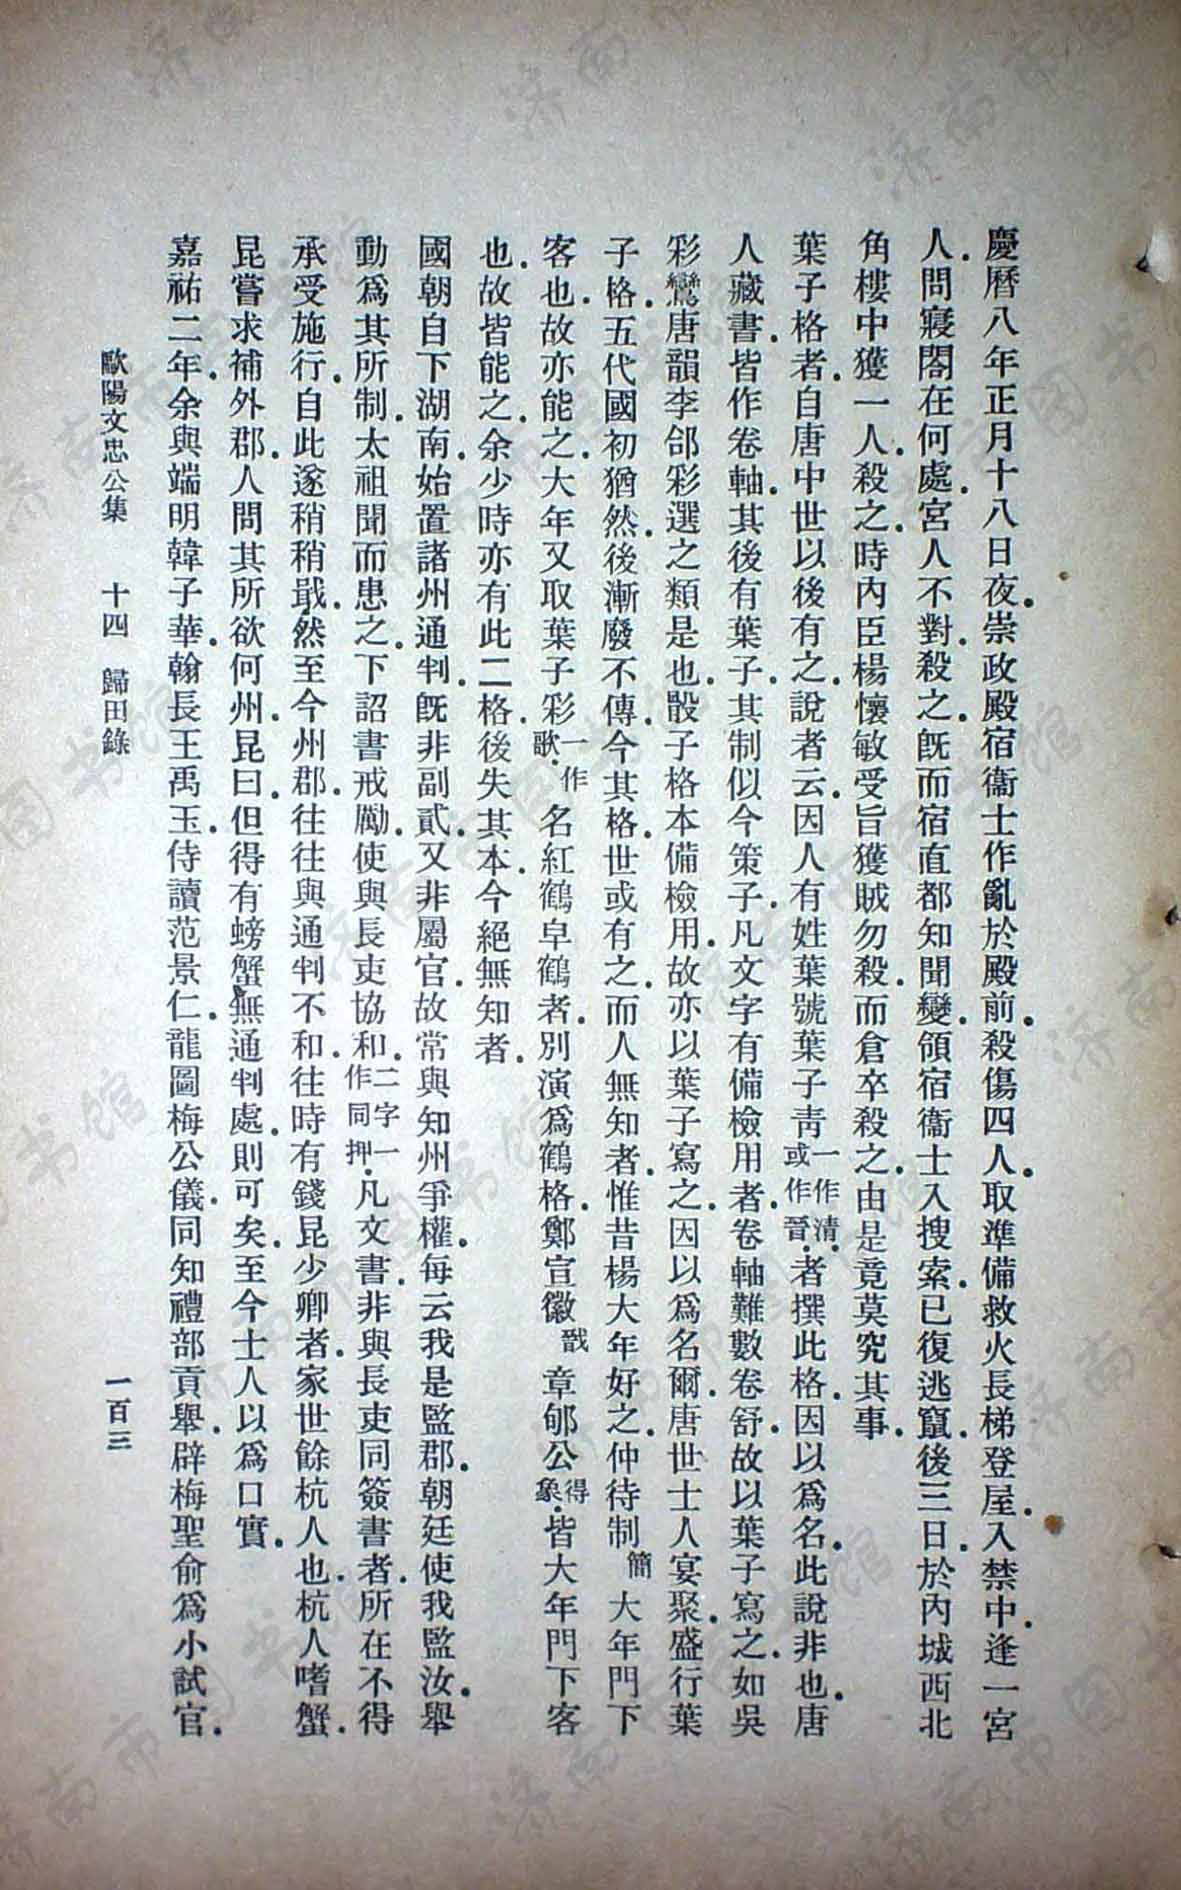 慶曆八年正月十八日夜。崇政殿宿衞士作亂於殿前。殺傷四人。取準備救火長梯登屋。入禁中。逢一宮
人。問寢閣在何處。宮人不對。殺之。旣而宿直都知聞變。領宿衞士入搜索。已復逃竄。後三日。於內城西北
角樓中獲一人。殺之。時內臣楊懷敏受旨獲賊勿殺。而倉卒殺之。由是竟莫究其事。
葉子格者。自唐中世以後有之。說者云。因人有姓葉號葉子靑一作清或作晉。者撰此格。因以爲名。此說非也。唐
人藏書。皆作卷軸。其後有葉子。其制似今策子。凡文字有備檢用者。卷軸難數卷舒。故以葉子寫之。如吳
彩鸞唐韻李郃彩選之類是也。骰子格本備檢用。故亦以葉子寫之。因以爲名爾。唐世士人宴聚。盛行葉
子格。五代國初猶然。後漸廢不傳。今其格。世或有之。而人無知者。惟昔楊大年好之。仲待制簡大年門下
客也。故亦能之。大年又取葉子彩一作歌。名紅鶴皁鶴者。別演爲鶴格。鄭宣徽戩章郇公得象。皆大年門下客
也。故皆能之。余少時亦有此二格。後失其本。今絕無知者。
國朝自下湖南。始置諸州通判。旣非副貳。又非屬官。故常與知州爭權。每云我是監郡。朝廷使我監汝。舉
動爲其所制。太祖聞而患之。下詔書戒勵。使與長吏協和。二字一作同押。凡文書。非與長吏同簽書者。所在不得
承受施行。自此遂稍稍戢。然至今州郡。往往與通判不和。往時有錢昆少卿者。家世餘杭人也。杭人嗜蟹。
昆嘗求補外郡。人問其所欲何州。昆曰。但得有螃蟹無通判處。則可矣。至今士人以爲口實。
嘉祐二年。余與端明韓子華。翰長王禹玉。侍讀范景仁。龍圖梅公儀。同知禮部貢舉。辟梅聖俞爲小試官。
歐陽文忠公集 十四 歸田錄 一百三